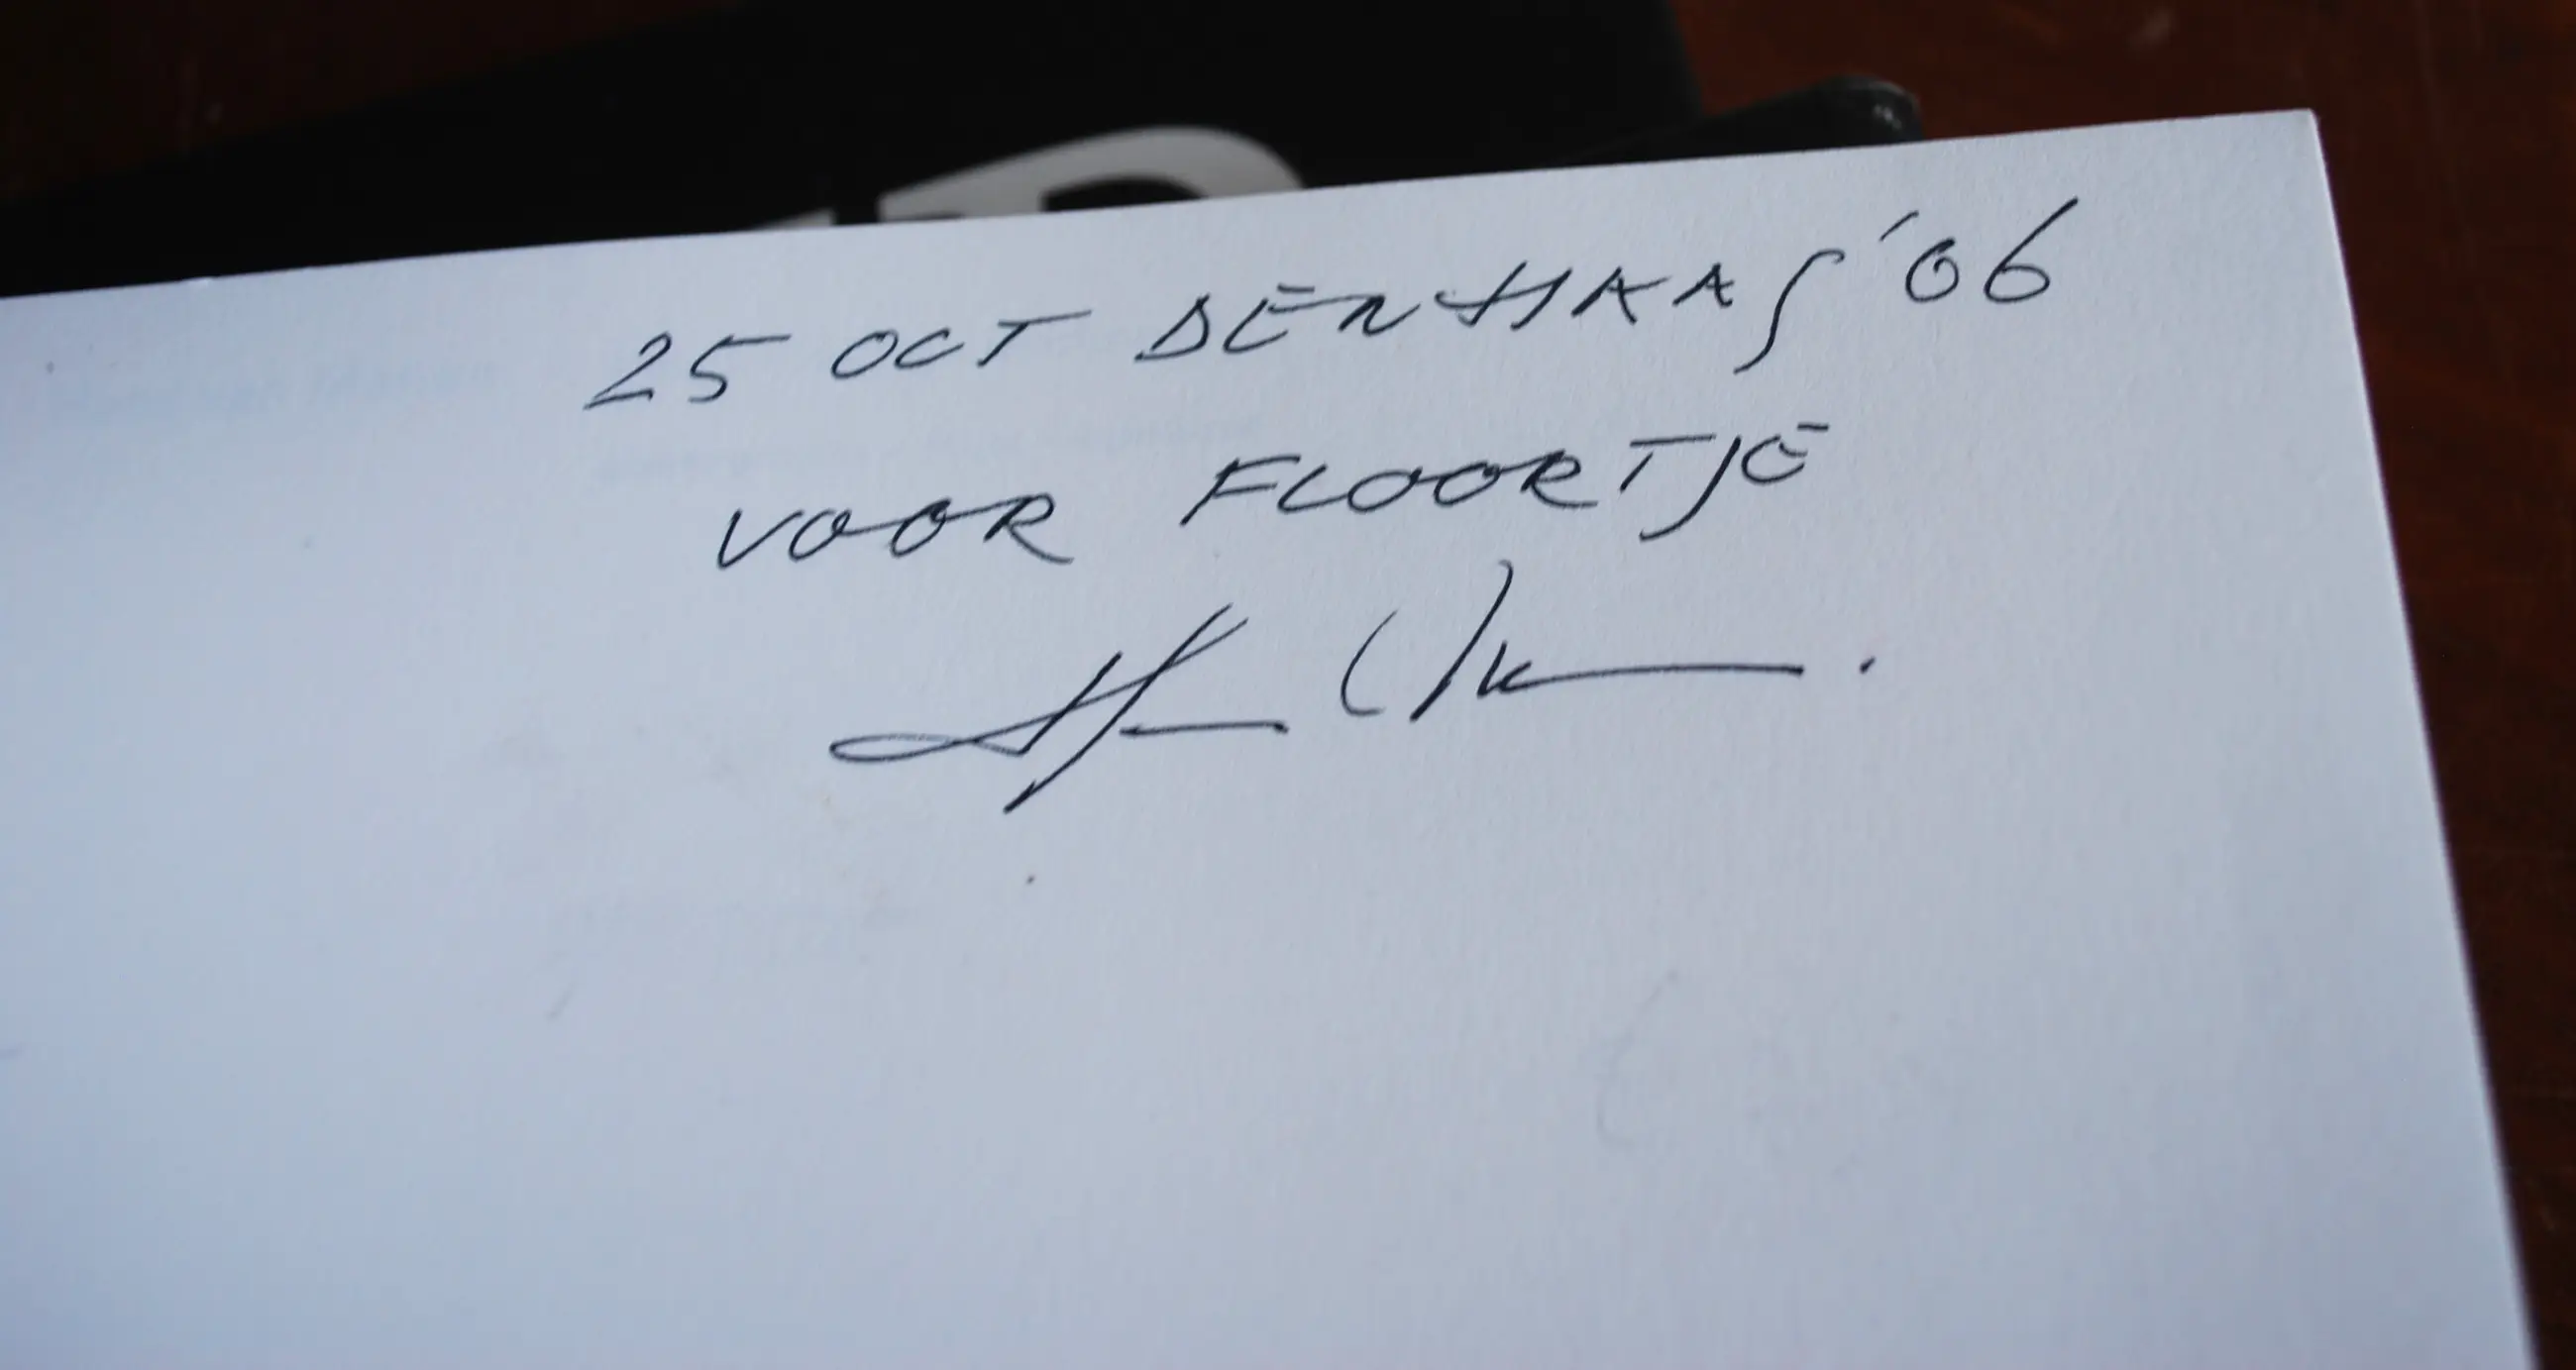 25 OCT DEN HAAG '06
VOOR FLOORTJE